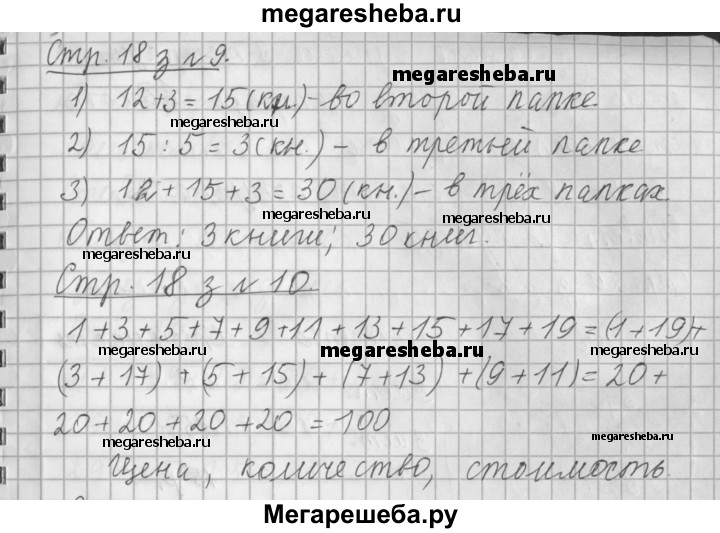 megaresheba.ru
Стр. 18 з № 9.
megaresheba.ru
1) 12+3=15(кн.)-во второй папке.
megaresheba.ru
2) 15:5=3(кн.)- в третьей папке
3) 12+15+3=30(кн.)-в трёх папках.
megaresheba.ru
megaresheba.ru
Ответ: 3 книги; 30 книг.
megaresheba.ru
Стр. 18 з № 10.
1+3+5+7+9+11+13+15+17+19=(1+19)+
megaresheba.ru
megaresheba.ru
megaresheba.ru
(3+17)+(5+15)+(7+13)+(9+11)=20+
20+20+20+20=100
megaresheba.ru
megaresheba.ru
Цена, количество, стоимость.
megaresheba.ru
Мегарешеба.ру